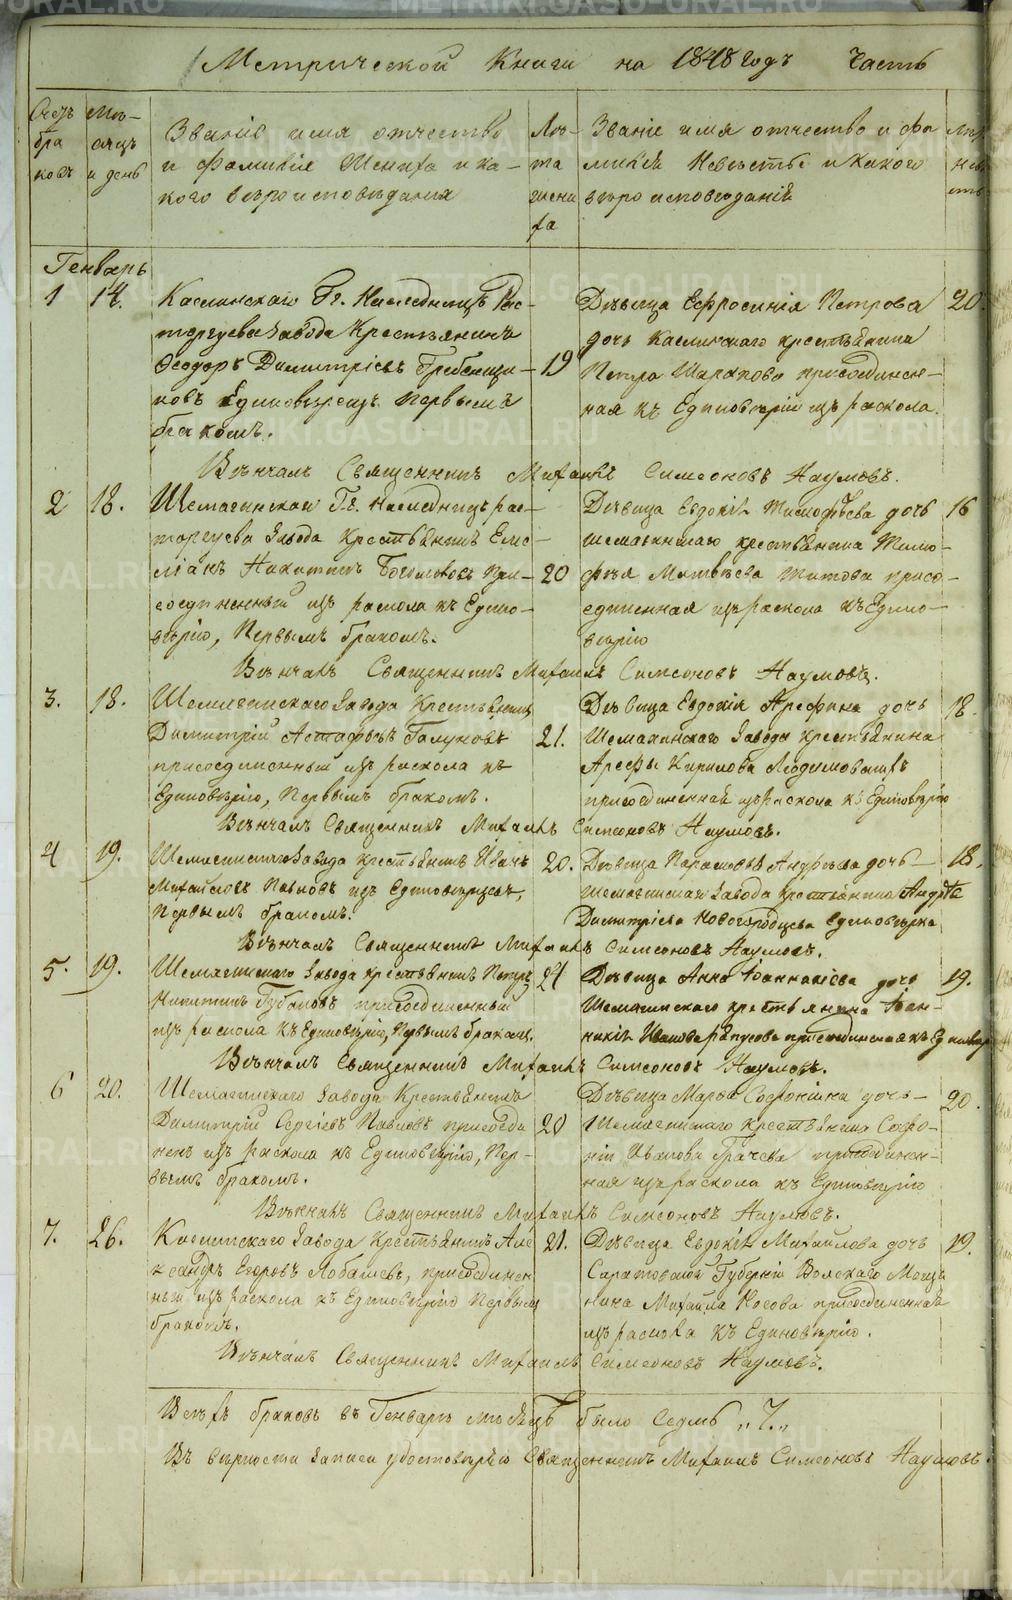 Метрической Книги на 1848 годъ Часть
Счетъ браковъ
Мѣсяцъ и день
Званіе имя отчество
и фамилія Жениха и ка-
кого вѣроисповѣданія
Лѣта жениха
Званіе имя отчество и фа
милія Невѣсты и какого
вѣроисповѣданія
Генварь
1 14.
Каслинскаго Гг. Наслѣдницъ Рас-
торгуева Завода Крестьянинъ
Ѳеодоръ Димитріевъ Гребенщи-
ковъ Единовѣрецъ Первымъ
бракомъ.
19
Дѣвица Ефросинія Петрова
дочь Каслинскаго крестьянина
Петра Шарапова присоединен-
ная къ Единовѣрію изъ раскола.
20.
Вѣнчалъ Священникъ Михаилъ Симеоновъ Наумовъ.
2 18.
Шемахинскаго Гг. Наслѣдницъ рас-
торгуева Завода Крестьянинъ Еме-
ліанъ Никитинъ Боголюбовъ При-
соединенный изъ раскола къ Едино-
вѣрію, Первымъ бракомъ.
20
Дѣвица Евдокія Тимофѣева дочь
шемахинскаго крестьянина Тимо-
фѣя Матвѣева Титова присо-
единенная изъ раскола къ Едино-
вѣрію
16
Вѣнчалъ Священникъ Михаилъ Симеоновъ Наумовъ.
3. 18.
Шемахинскаго Завода Крестьянинъ
Димитрій Астафьевъ Галуновъ
присоединенный изъ раскола къ
Единовѣрію, Первымъ бракомъ.
21.
Дѣвица Евдокія Арефина дочь
Шемахинскаго Завода крестьянина
Арефы Кирилова
присоединенная изъ раскола къ Единовѣрію
18.
Вѣнчалъ Священникъ Михаилъ Симеоновъ Наумовъ.
4 19.
Шемахинскаго Завода крестьянинъ Иванъ
Михайловъ Павловъ изъ Единовѣрцевъ,
Первымъ бракомъ.
20.
Дѣвица Парасковья Андреева дочь
Шемахинскаго Завода Крестьянина Андрея
Димитріева Новогородцева Единовѣрка
18.
Вѣнчалъ Священникъ Михаилъ Симеоновъ Наумовъ.
5. 19.
Шемахинскаго Завода крестьянинъ Петръ
Никитинъ Губановъ присоединенный
изъ раскола къ Единовѣрію, Первымъ бракомъ.
24
Дѣвица Анна Іоанникіева дочь
Шемахинскаго крестьянина Іоан-
никія Иванова присоединенная къ
19.
Вѣнчалъ Священникъ Михаилъ Симеоновъ Наумовъ.
6 20.
Шемахинскаго Завода Крестьянинъ
Димитрій Сергіевъ Павловъ присоеди
ненъ изъ раскола къ Единовѣрію, Пер-
вымъ бракомъ.
20
Дѣвица Марья Софоніина дочь
Шемахинскаго Крестьянина Софо-
ніи Иванова Грачева присоединен-
ная изъ раскола къ Единовѣрію
20.
Вѣнчалъ Священникъ Михаилъ Симеоновъ Наумовъ.
7. 26.
Каслинскаго Завода Крестьянинъ Але
ксандръ Егоровъ Лобашевъ, присоединен
ный изъ раскола къ Единовѣрію Первымъ
бракомъ.
21.
Дѣвица Евдокія Михайлова дочь
Саратовской Губерніи Вольскаго Мѣща
нина Михайла Носова присоединенная
изъ раскола къ Единовѣрію.
19.
Вѣнчалъ Священникъ Михаилъ Симеоновъ Наумовъ.
Всѣхъ браковъ въ Генварѣ мѣсяцѣ было Седмь „7.„
Въ верности записи удостовѣряю Священникъ Михаилъ Симеоновъ Наумовъ
METRIKI.GASO-URAL.RU